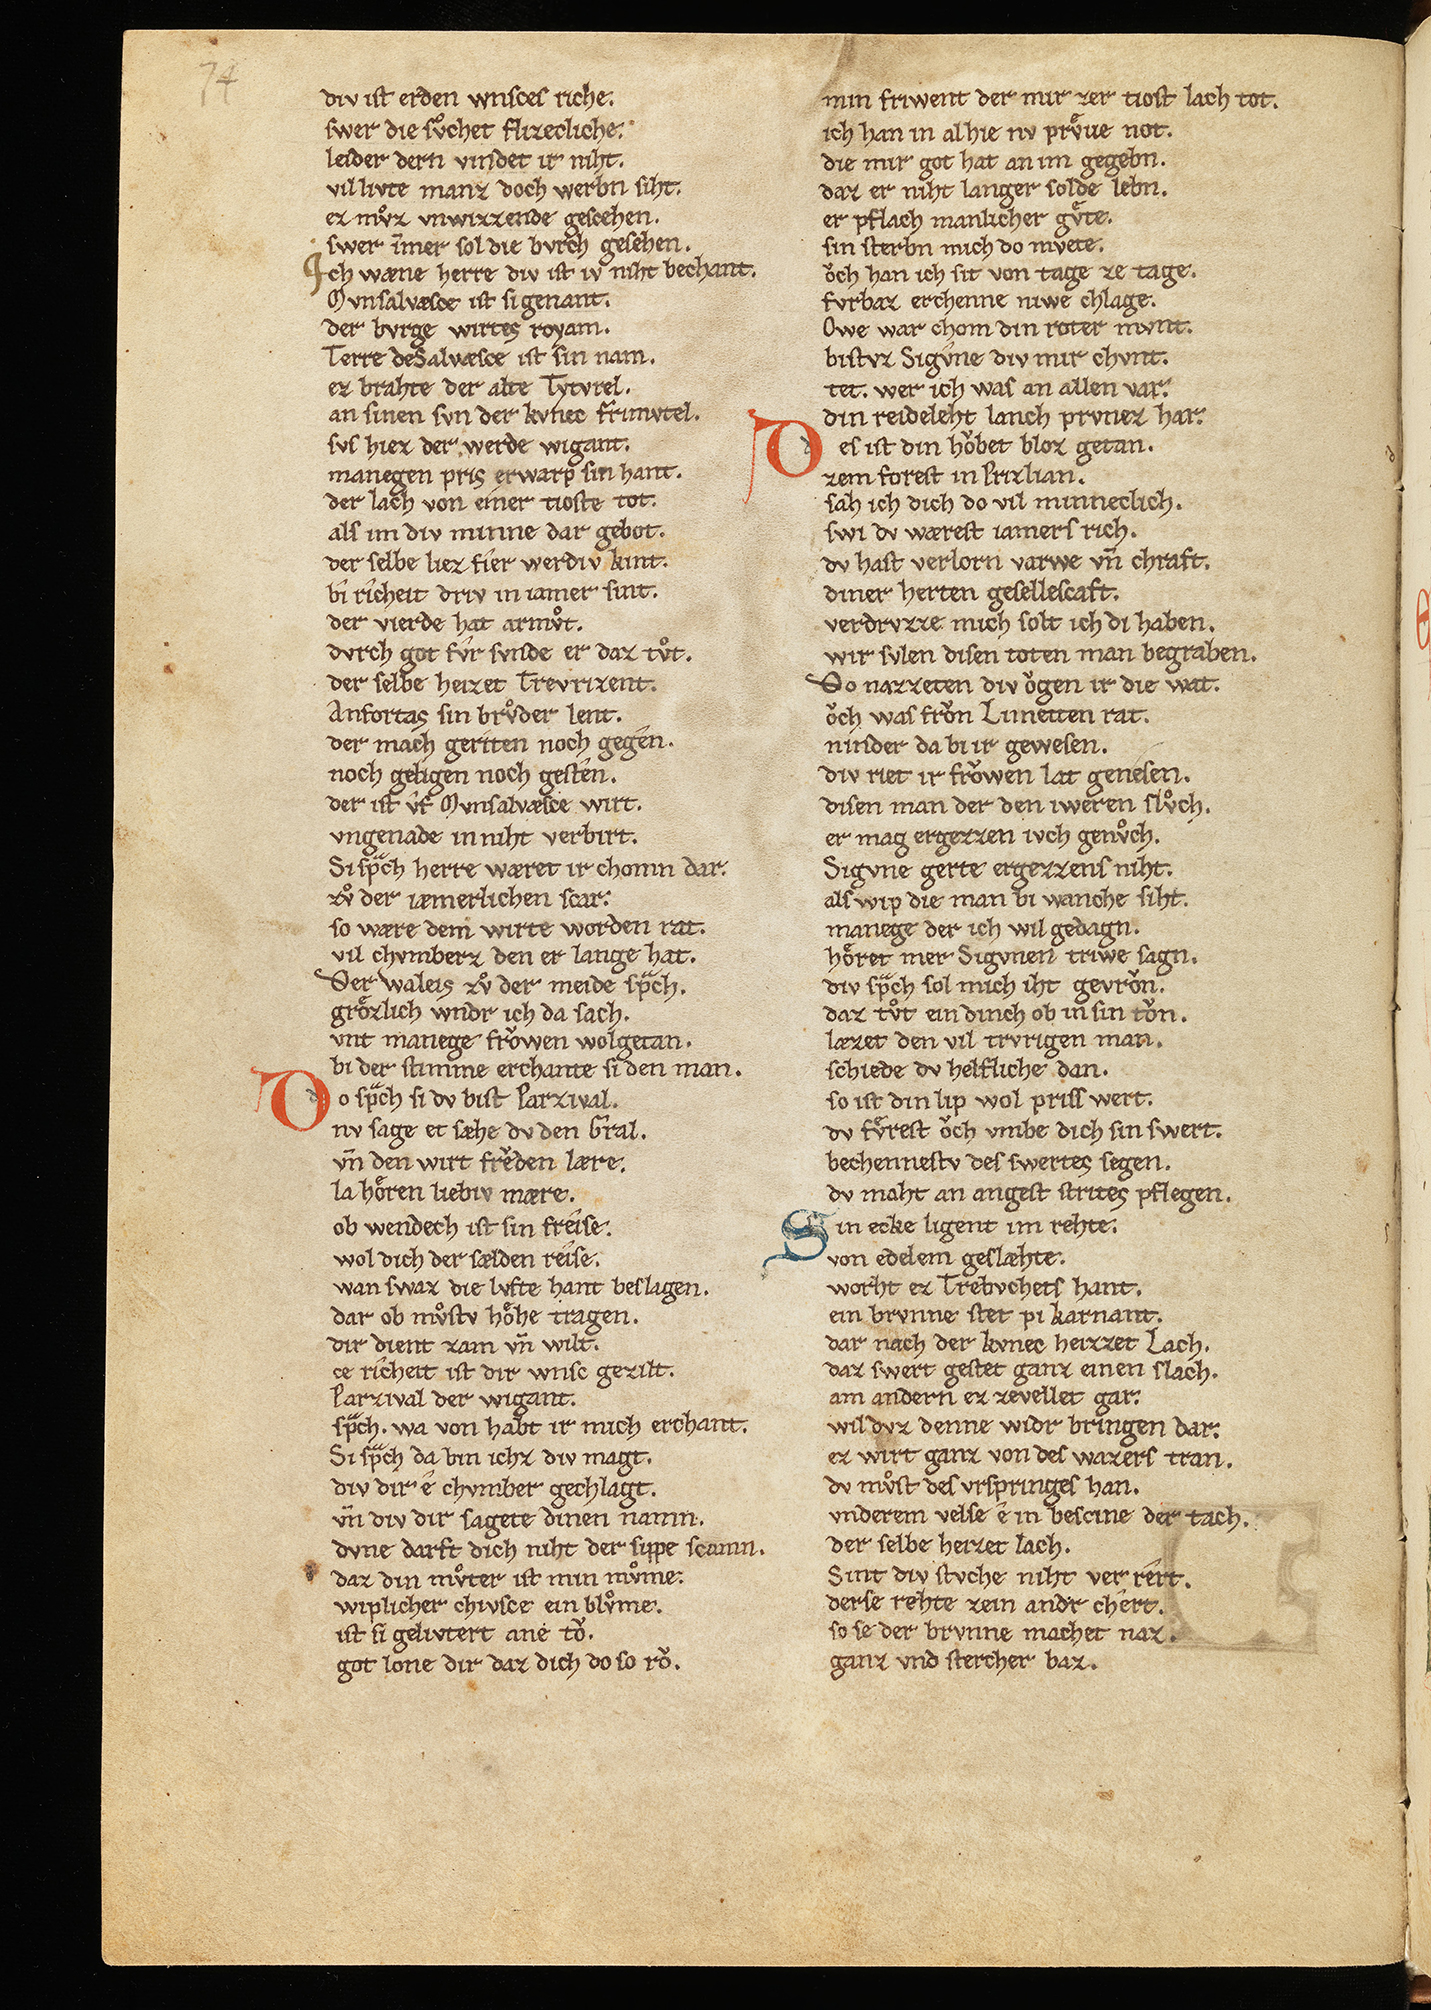 74
div ist erden wnsces riche.
swer die sůchet flizecliche.
leider dern vindet ir niht.
vil livte manz doch werbn siht.
ez můz vnwizzende gescehen.
swer im̄er sol die bvrch gesehen.
Ich wæne herre div ist iv niht bechant.
Mvnsalvæsce ist si genant.
der bvrge wirtes royam.
Terre deSalvæsce ist sin nam.
ez brahte der alte Tytvrel.
an sinen svn der kvnec frimvtel.
svs hiez der werde wigant.
manegen pris erwarp sin hant.
der lach von einer tioste tot.
als im div minne dar gebot.
der selbe liez fier werdiv kint.
bi richeit driv in iamer sint.
der vierde hat armůt.
dvrch got fvr svnde er daz tůt.
der selbe heizet Trevrizent.
Anfortas sin brůder lent.
der mach geriten noch gegen.
noch geligen noch gesten.
der ist vf Mvnsalvæsce wirt.
vngenade in niht verbirt.
Si spͣch herre wæret ir chomn dar.
zů der iæmerlichen scar.
so wære dem wirte worden rat.
vil chvmberz den er lange hat.
Der waleis zů der meide spͣch.
grͦzlich wndr ich da sach.
vnt manege frͦwen wolgetan.
bi der stimme erchante si den man.
Do spͣch si dv bist Parzival.
nv sage et sæhe dv den Gral.
vn̄ den wirt frͦden lære.
la hͦren liebiv mære.
ob wendech ist sin freise.
wol dich der sælden reise.
wan swaz die lvfte hant beslagen.
dar ob můstv hͦhe tragen.
dir dient zam vn̄ wilt.
ce richeit ist dir wnsc gezilt.
Parzival der wigant.
spͣch. wa von habt ir mich erchant.
Si spͣch da bin ichz div magt.
div dir e chvmber gechlagt.
vn̄ div dir sagete dinen namn.
dvne darft dich niht der sippe scamn.
daz din můter ist min můme.
wiplicher chivsce ein blůme.
ist si gelivtert ane tͦ.
got lone dir daz dich do so rͦ.
min friwent der mir zer tiost lach tot.
ich han in alhie nv průue not.
die mir got hat an im gegebn.
daz er niht langer solde lebn.
er pflach manlicher gůte.
sin sterbn mich do mvete.
ͦch han ich sit von tage ze tage.
fvrbaz erchenne niwe chlage.
Owe war chom din roter mvnt.
bistvz Sigvne div mir chvnt.
tet. wer ich was an allen var.
din reideleht lanch prvnez har.
Des ist din hͦbet bloz getan.
zem forest in Prizlian.
sah ich dich do vil minneclich.
swi dv wærest iamers rich.
dv hast verlorn varwe vn̄ chraft.
diner herten gesellescaft.
verdrvzze mich solt ich di haben.
wir svlen disen toten man begraben.
Do nazzeten div ͦgen ir die wat.
ͦch was frͦn Lunetten rat.
ninder da bi ir gewesen.
div riet ir frͦwen lat genesen.
disen man der den iweren slůch.
er mag ergezzen ivch genůch.
Sigvne gerte ergezzens niht.
als wip die man bi wanche siht.
manege der ich wil gedagn.
hͦret mer Sigvnen triwe sagn.
div spͣch sol mich iht gevrͦn.
daz tůt ein dinch ob in sin tͦn.
læzet den vil trvrigen man.
schiede dv helfliche dan.
so ist din lip wol priss wert.
dv fůrest ͦch vmbe dich sin swert.
bechennestv des swertes segen.
dv maht an angest strites pflegen.
Sin ecke ligent im rehte.
von edelem geslæhte.
worht ez Trebvchets hant.
ein brvnne stet pi karnant.
dar nach der kvnec heizzet Lach.
daz swert gestet ganz einen slach.
am andern ez zevellet gar.
wil dvz denne widr bringen dar.
ez wirt ganz von des wazers tran.
dv můst des vrspringes han.
vnderem velse e in bescine der tach.
der selbe heizet lach.
Sint div stvche niht ver rert.
derse rehte zein andr chert.
so se der brvnne machet naz.
ganz vnd stercher baz.